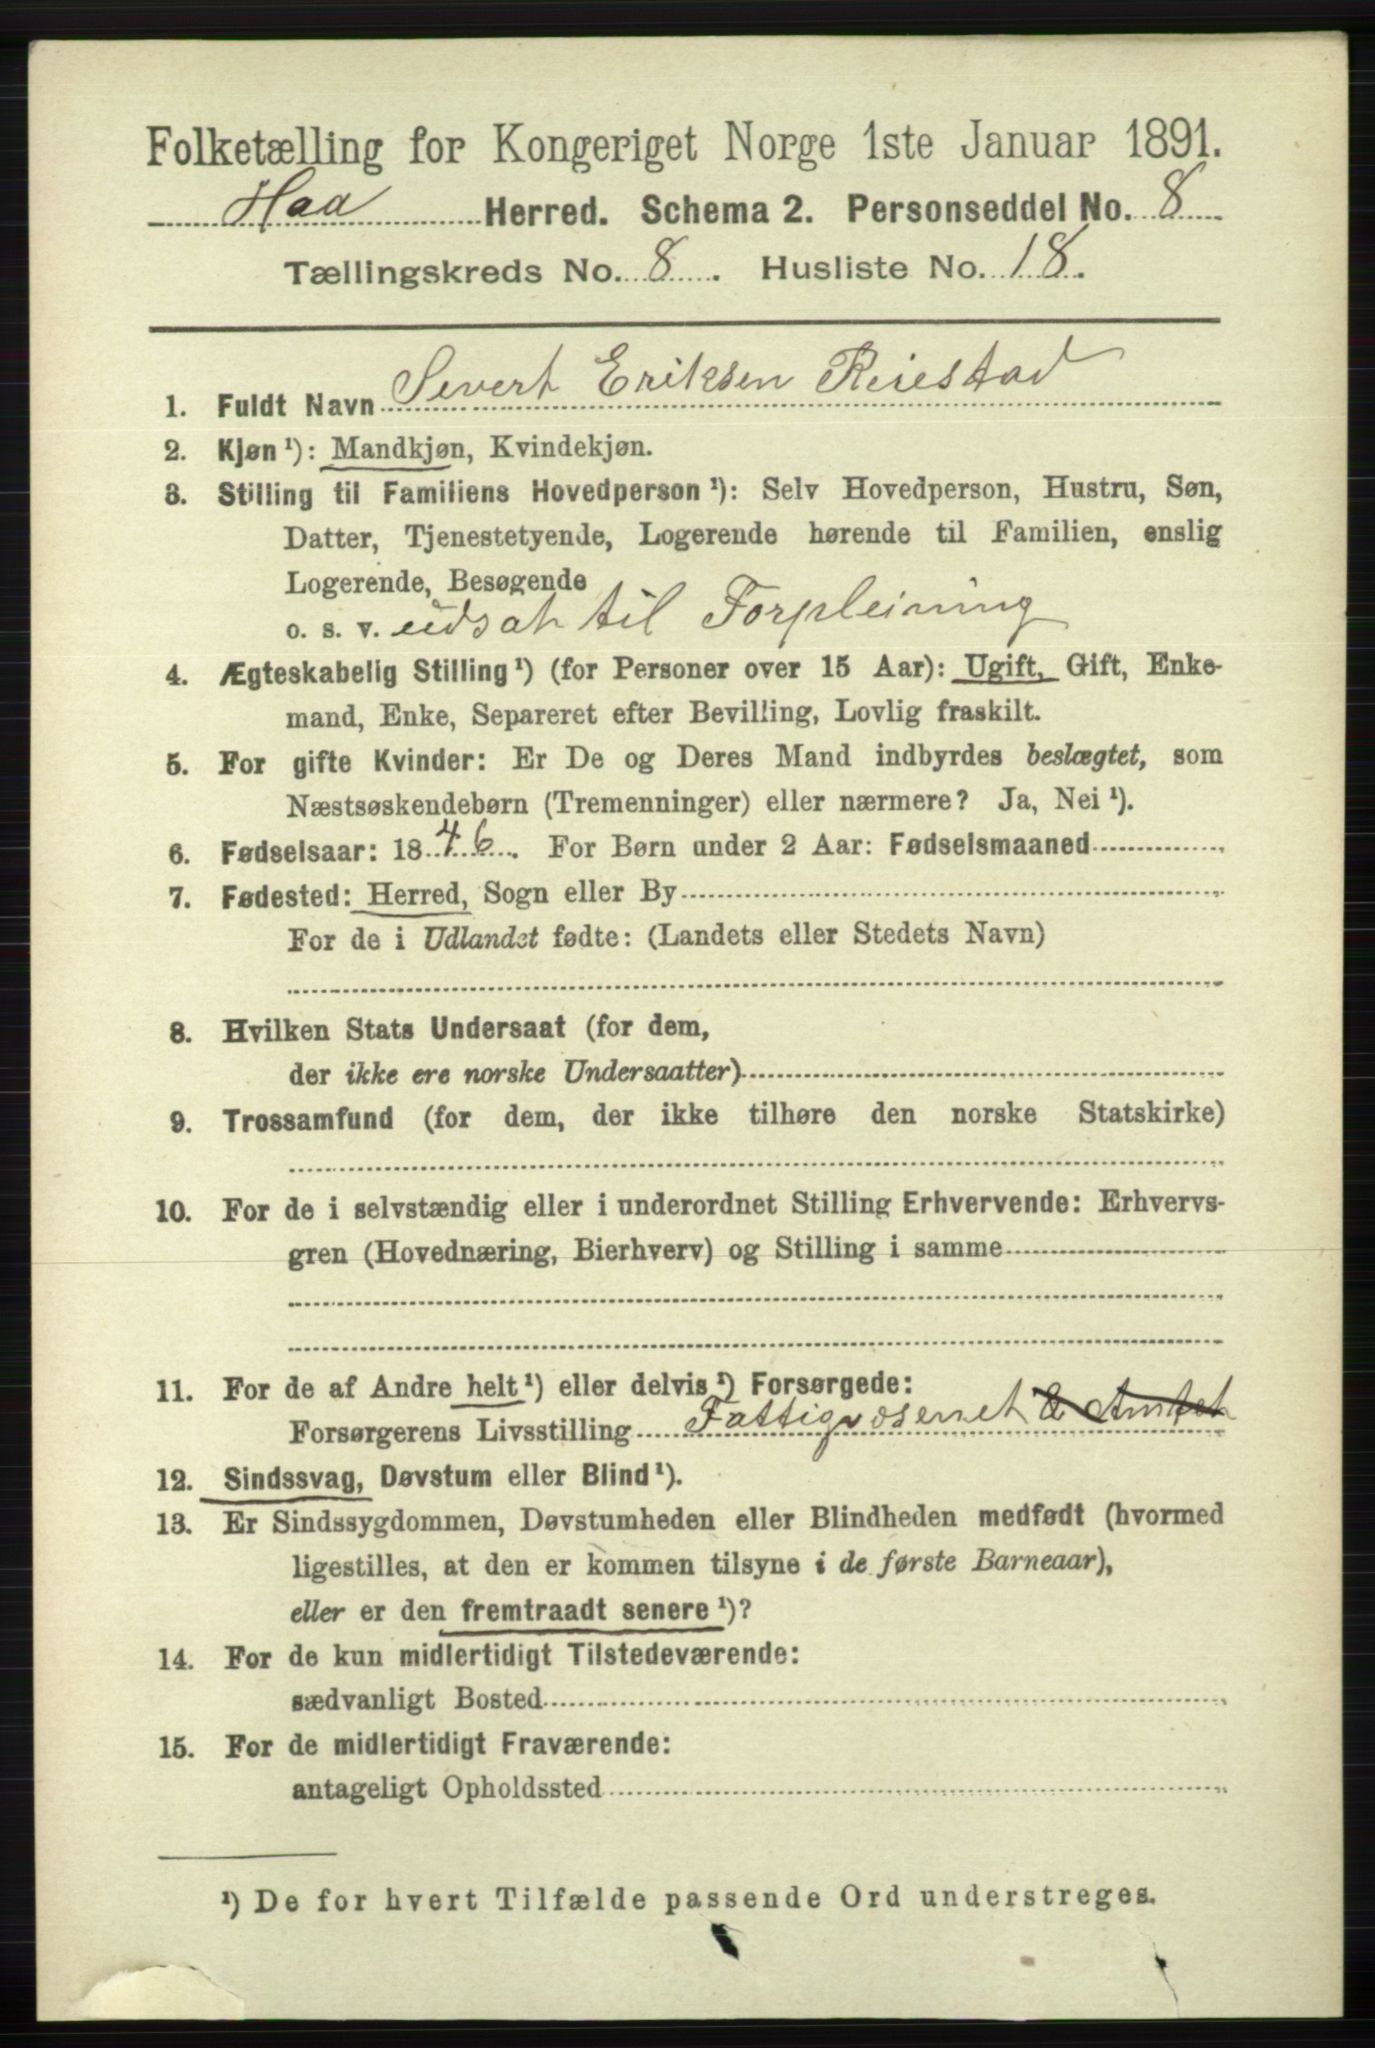 Folketælling for Kongeriget Norge 1ste Januar 1891.
Haa Herred. Schema 2. Personseddel No. 8
Tællingskreds No. 8. Husliste No. 18.
1. Fuldt Navn Severt Eriksen Reiestad
2. Kjøn¹): Mandkjøn, Kvindekjøn.
3. Stilling til Familiens Hovedperson¹): Selv Hovedperson, Hustru, Søn,
Datter, Tjenestetyende, Logerende hørende til Familien, enslig
Logerende, Besøgende
o. s. v. udsat til Forpleining
4. Ægteskabelig Stilling¹) (for Personer over 15 Aar): Ugift, Gift, Enke-
mand, Enke, Separeret efter Bevilling, Lovlig fraskilt.
5. For gifte Kvinder: Er De og Deres Mand indbyrdes beslægtet, som
Næstsøskendebørn (Tremenninger) eller nærmere? Ja, Nei¹).
6. Fødselsaar: 1846. For Børn under 2 Aar: Fødselsmaaned
7. Fødested: Herred, Sogn eller By
For de i Udlandet fødte: (Landets eller Stedets Navn)
8. Hvilken Stats Undersaat (for dem,
der ikke ere norske Undersaatter)
9. Trossamfund (for dem, der ikke tilhøre den norske Statskirke)
10. For de i selvstændig eller i underordnet Stilling Erhvervende: Erhvervs-
gren (Hovednæring, Bierhverv) og Stilling i samme
11. For de af Andre helt¹) eller delvis¹) Forsørgede:
Forsørgerens Livsstilling Fattigvæsenet & Amtet
12. Sindssvag, Døvstum eller Blind¹).
13. Er Sindssygdommen, Døvstumheden eller Blindheden medfødt (hvormed
ligestilles, at den er kommen tilsyne i de første Barneaar),
eller er den fremtraadt senere¹)?
14. For de kun midlertidigt Tilstedeværende:
sædvanligt Bosted
15. For de midlertidigt Fraværende:
antageligt Opholdssted
¹) De for hvert Tilfælde passende Ord understreges.